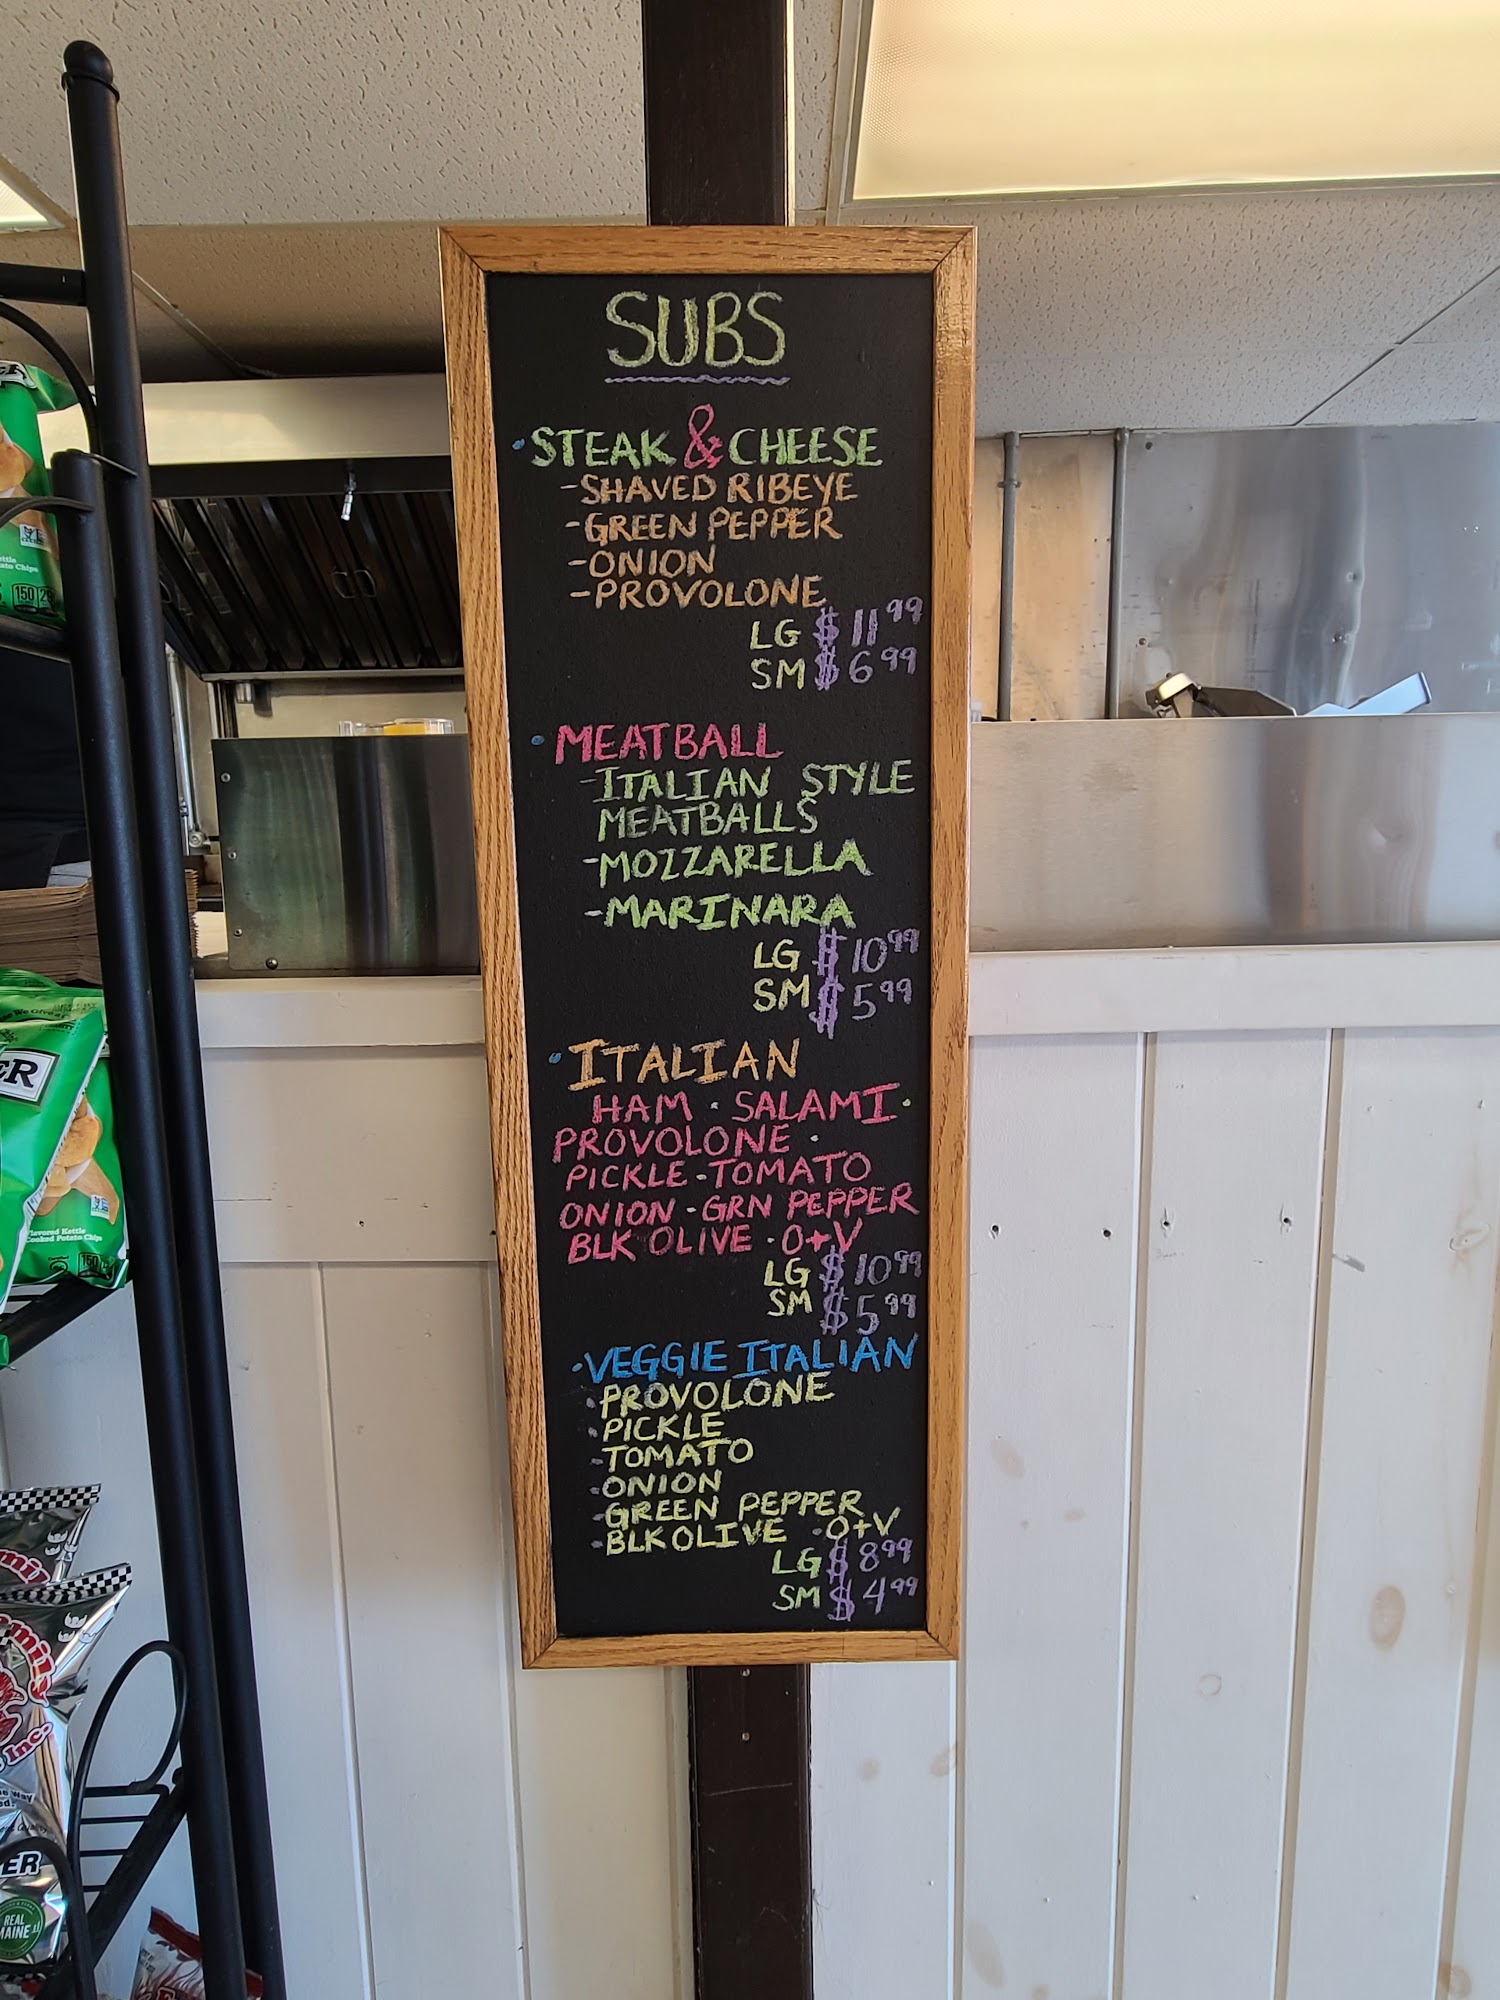 SUBS
• STEAK & CHEESE
-SHAVED RIBEYE
-GREEN PEPPER
-ONION
-PROVOLONE
LG $11.99
SM $6.99
• MEATBALL
-ITALIAN STYLE
MEATBALLS
-MOZZARELLA
-MARINARA
LG $10.99
SM $5.99
• ITALIAN
HAM • SALAMI •
PROVOLONE •
PICKLE • TOMATO
ONION • GRN PEPPER
BLK OLIVE • O+V
LG $10.99
SM $5.99
• VEGGIE ITALIAN
• PROVOLONE
• PICKLE
• TOMATO
• ONION
• GREEN PEPPER
• BLK OLIVE • O+V
LG $8.99
SM $4.99
ER
Flavored Kettle
Cooked Potato Chips
150
Inc.
ER
REAL
MAINE